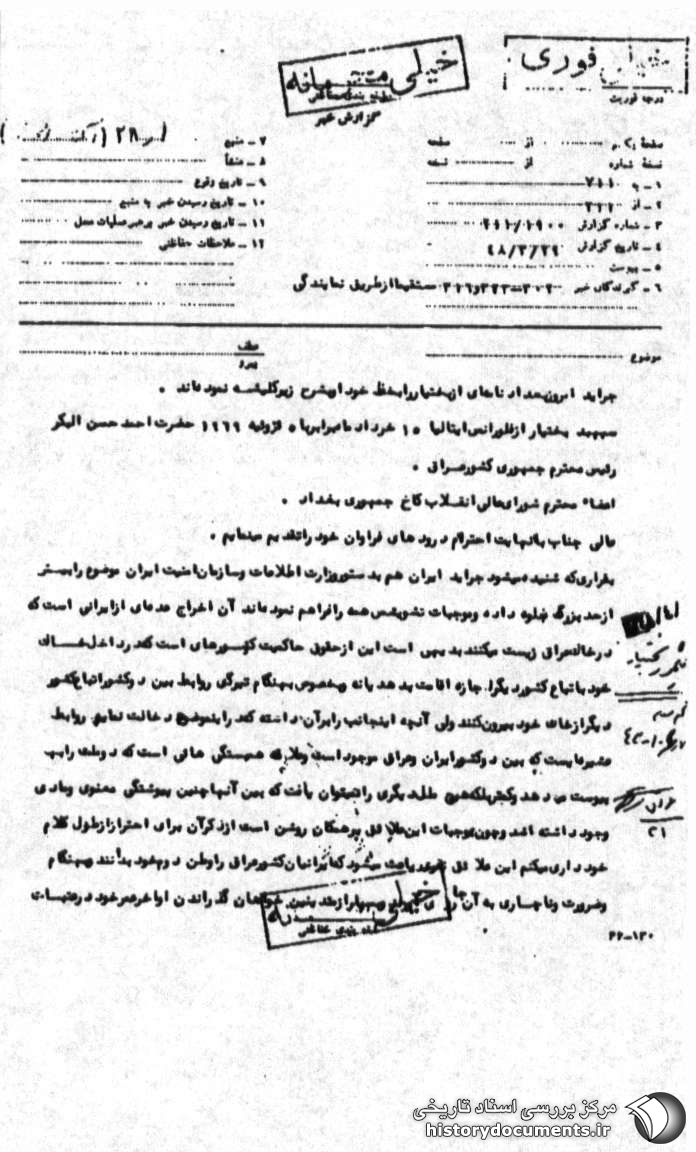 خیلی فوری
درجه فوریت
خیلی محرمانه
طبقه بندی حفاظتی
گزارش خبر
صفحه یکم از صفحه
نسخه شماره از نسخه
۱ ـ به ۷۱۱
۲ ـ از ۲۱۱
۳ ـ شماره گزارش ۲۱۱/۱۹۰۰
۴ ـ تاریخ گزارش ۴۸/۳/۲۹
۵ ـ پیوست
۶ ـ گیرندگان خبر ۳۰۲ـ۳۲۳و۳۱۶ مستقیما ازطریق نمایندگی
۷ ـ منبع
۸ ـ منشأ
۹ ـ تاریخ وقوع
۱۰ ـ تاریخ رسیدن خبر به منبع
۱۱ ـ تاریخ رسیدن خبر برهبر عملیات محل
۱۲ ـ ملاحظات حفاظتی
موضوع
عطف
پیرو
جراید امروزبغداد نامه‌ای ازبختیاررابخط خود اوبشرح زیرکلیشه نموده‌اند .
سپهبد بختیار ازفلورانس ایتالیا ۱۵ خرداد ماه برابربا ۵ ژوئیه ۱۹۶۹ حضرت احمد حسن البکر
رئیس محترم جمهوری کشورعراق .
اعضا محترم شورای‌عالی انقلاب کاخ جمهوری بغداد .
عالی جناب بانهایت احترام درود های فراوان خود راتقدیم مینمایم .
بقراری‌که شنیده میشود جراید ایران هم بدستوروزارت اطلاعات وسازمان‌امنیت ایران موضوع رابیستر
ازحد بزرگ جلوه داده وموجبات تشویش همه رافراهم نموده‌اند آن اخراج عده‌ای ازایرانی است که
درخاک‌عراق زیست میکنند بدیهی است این ازحقوق حاکمیت کشورهای است که‌درداخل‌خاک
خود باتباع کشوردیگراجازه اقامت بدهد یانه وبخصوص‌بهنگام تیرگی روابط بین دوکشوراتباع‌کشور
دیگرازخاک خود بیرون‌کنند ولی آنچه اینجانب رابرآن داشته که‌دراینموضوع دخالت نمایم روابط
دیرینه‌ایست که بین دوکشورایران وعراق موجوداست وعلاقه همبستگی هائی است که دوملت رابهم
پیوست میدهد وکمتربلکه‌هیچ ملت‌دیگری رانمیتوان یافت‌که بین آنهاچنین پیوستگی معنوی ومادی
وجود داشته باشد وچون‌موجبات این‌علائق برهمگان روشن است ازذکرآن برای احترازازطول کلام
خود داری‌میکنم این علائق باعث میشود که‌ایرانیان‌کشورعراق راوطن دوم‌خود بدانند وبهنگام
وضرورت وناچاری به آن گذراندن اواخرعمرخود درعتبات
خیلی محرمانه
طبقه بندی حفاظتی
۲۲-۱۲۰
بختیار
۲۱
مرکز بررسی اسناد تاریخی
historydocuments.ir